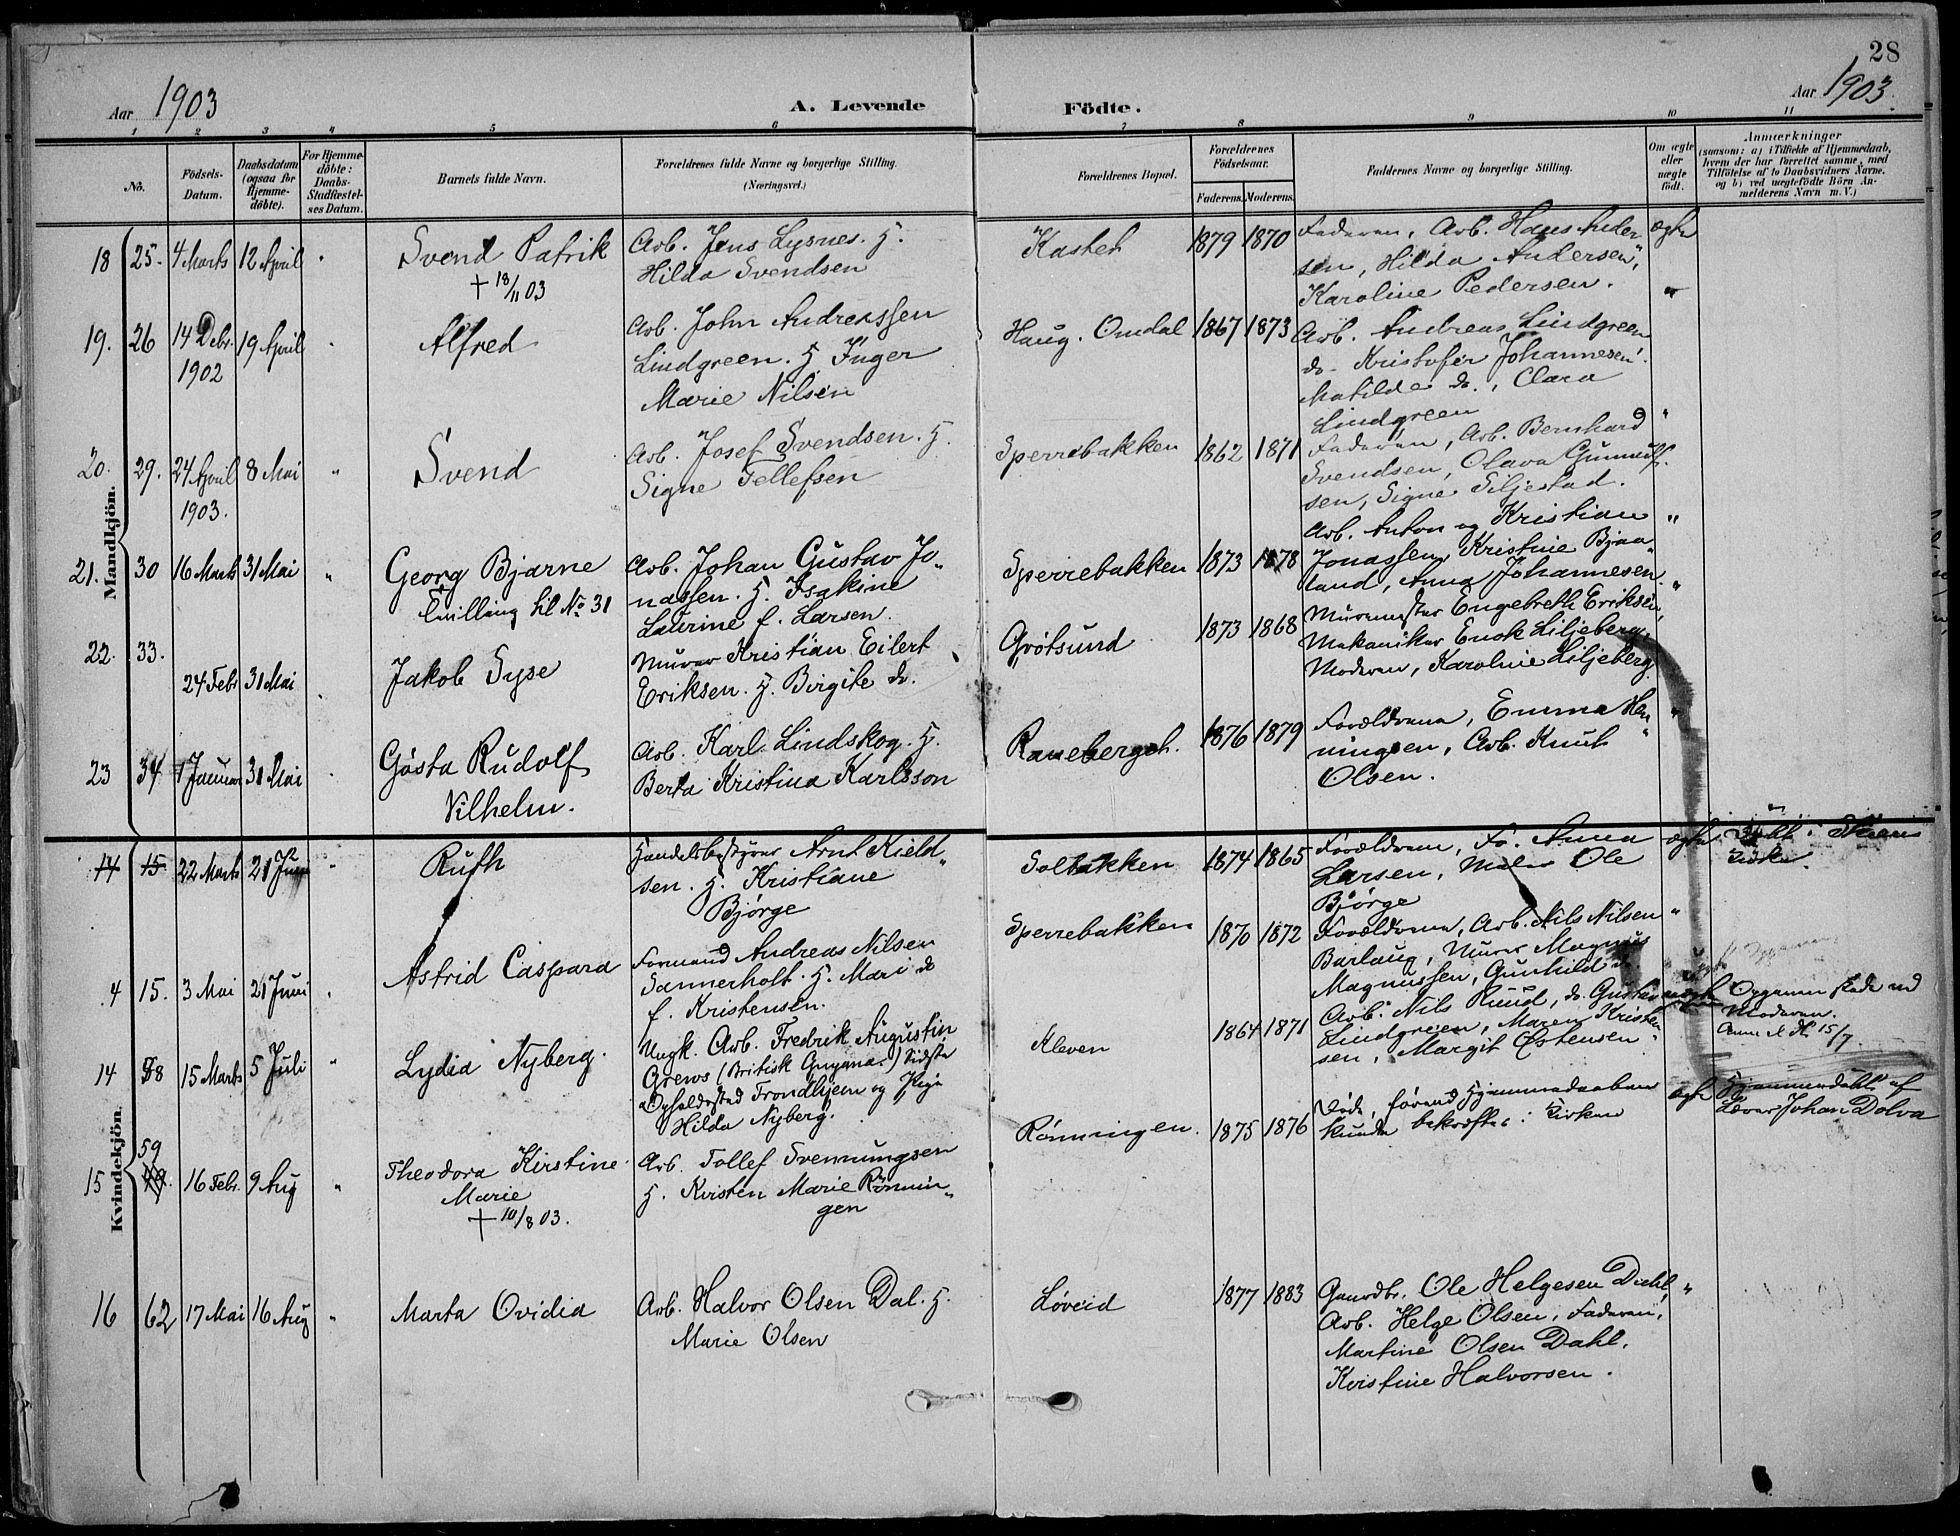 28
Aar 1903
A. Levende
Födte.
Aar 1903.
1 2 3 4 5 6 7 8 9 10 11
No.
Födsels-
Datum.
Daabsdatum
(ogsaa for
Hjemme-
döbte).
For Hjemme-
döbte:
Daabs-
Stadfæstel-
ses Datum.
Barnets fulde Navn.
Forældrenes fulde Navne og borgerlige Stilling.
(Næringsvei.)
Forældrenes Bopæl.
Forældrenes
Födselsaar.
Faderens. Moderens.
Faddernes Navne og borgerlige Stilling.
Om ægte
eller
uægte
födt.
Anmærkninger
(saasom: a) i Tilfælde af Hjemmedaab,
hvem der har forrettet samme, med
Tilföielse af to Daabsvidners Navne,
og b) ved uægtefödte Börn An-
melderens Navn m. V.)
Mandkjön.
18 25. 4 Marts 12 April
Svend Patrik
+ 18/11 03
Arb. Jens Lysnes. H.
Hilda Svendsen
Kastet
1879 1870
Faderen, Arb. Hans Ander-
sen, Hilda Andersen,
Karoline Pedersen.
ægte
19. 26 14 Debr. 19 April
1902
Alfred
Arb. John Andreassen
Lindgreen. H Inger
Marie Nilsen
Haug. Omdal
1867 1873
Arb. Andreas Lindgreen
do. Kristofer Johannesen.
Matilde do., Clara
Lindgreen
"
20. 29. 24 April 8 Mai "
1903.
Svend
Arb. Josef Svendsen. H.
Signe Tellefsen
Sperrebakken
1862 1871
Faderen, Arb. Bernhard
Svendsen, Olava Gunnulf-
sen, Signe Siljestad.
"
21. 30 16 Marts 31 Mai "
Georg Bjarne
Tvilling til No 31
Arb. Johan Gustav Jo-
nassen. H. Isakine
Laurine f. Larsen.
Sperrebakken
1873 1878
Arb. Anton og Kristian
Jonassen, Kristine Bjaa-
land, Anna Johannesen.
"
22. 33. 24 Febr 31 Mai
Jakob Syse
Murer Kristian Eilert
Eriksen. H. Birgite do.
Grötsund
1873 1868
Murmester Engebreth Eriksen,
Mekaniker Enok Liljeberg,
Moderen, Karoline Liljeberg.
"
23 34 1 Januar 31 Mai
Gösta Rudolf
Vilhelm.
Arb. Karl Lindskog. H.
Berta Kristina Karlsson
Raneberget.
1876 1879
Forældrene, Emma Hen-
ningsen, Arb. Knut
Olsen.
"
Kvindekjön.
14 15 22 Marts 21 Juni "
Ruth
Handelsbestyrer Arnt Kield-
sen. H. Kristiane
Bjørge
Solbakken
1874 1865
Forældrene, Fr. Anna
Larsen, Maler Ole
Bjørge
ægte
i Skiens
Kirke.
4 15. 3 Mai 21 Juni "
Astrid Caspara
Formand Andreas Nilsen
Sannerholt. H. Mari do
f. Kristensen.
Sperrebakken
1870 1872
Forældrene, Arb. Nils Nilsen
Barlaug, Murer Magnus
Magnussen, Gunhild do
"
14 58 15 Marts 5 Juli "
Lydia Nyberg.
Ungk. Arb. Fredrik Augustin
Grews (Britisk Guyana.) Sidste
Opholdssted Trondhjem og Pige
Hilda Nyberg.
Kleven
1864 1871
Arb. Nils Ruud, do. Gustav
Lindgreen, Maren Kristen-
sen, Margit Østensen
uægte
Opgaven skede ved
Moderen.
15/7.
15 59 16 Febr. 9 Aug "
Theodora Kirstine
Marie
+ 10/8 03.
Arb. Tollef Svennungsen
H. Kristen Marie Rönnin-
gen
Rönningen.
1875 1876
Döde, förend Hjemmedaaben
kunde bekræftes i Kirken
ægte
Hjemmedöbt af
Lærer Johan Dolva
16 62 17 Mai 16 Aug "
Marta Ovidia
Arb. Halvor Olsen Dal. H.
Marie Olsen
Løveid
1877 1883
Gaardbr. Ole Helgesen Dahl,
Arb. Helge Olsen, Faderen,
Martine Olsen Dahl,
Kristine Halvorsen.
"